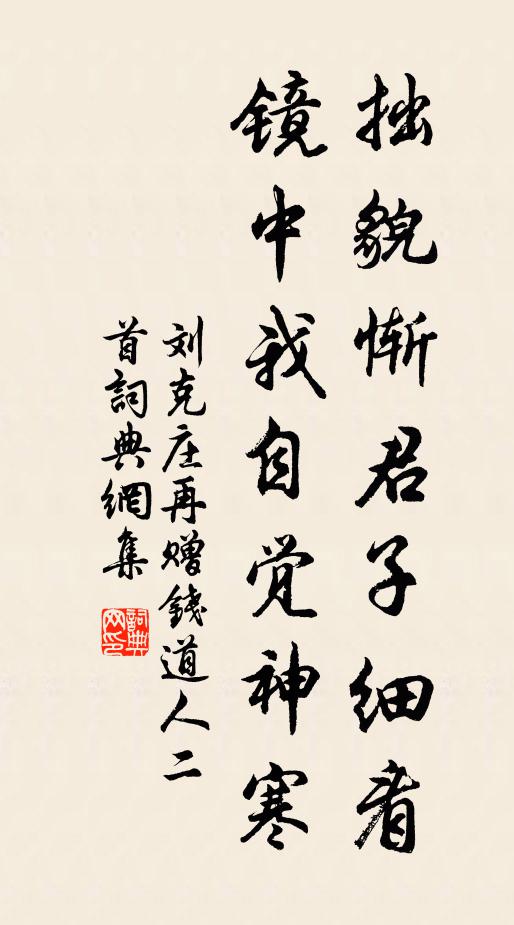 拙貌惭君子细看
镜中我自觉神寒
刘克庄再赠錢道人二
首詞典網集
詞典
网印